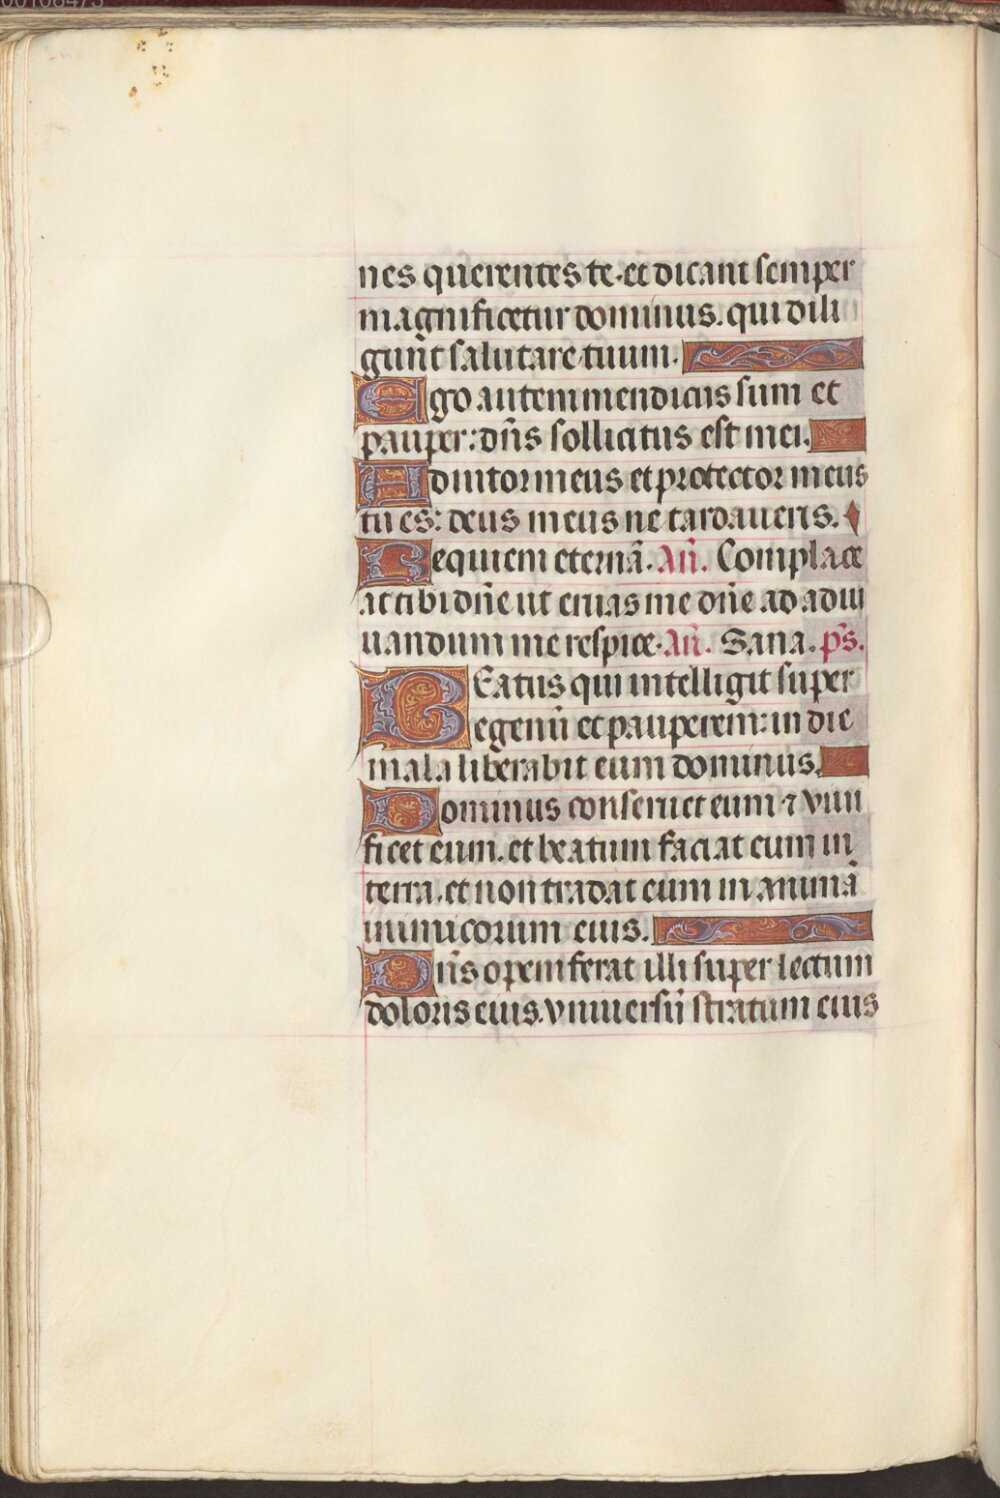 nes querentes te. et dicant semper
magnificetur dominus. qui dili
gunt salutare tuum.
Ego autem mendicus sum et
pauper: dn̄s sollicitus est mei.
Adiutor meus et protector meus
tu es: deus meus ne tardaueris.
Requiem eternā. Añ. Complace
at tibi dn̄e ut eruas me dn̄e ad adiu
uandum me respice. Añ. Sana. ps̄.
BEatus qui intelligit super
egenū et pauperem: in die
mala liberabit eum dominus.
Dominus conseruet eum ⁊ viui
ficet eum. et beatum faciat eum in
terra. et non tradat eum in animā
inimicorum eius.
Dn̄s opem ferat illi super lectum
doloris eius. vniuersū stratum eius